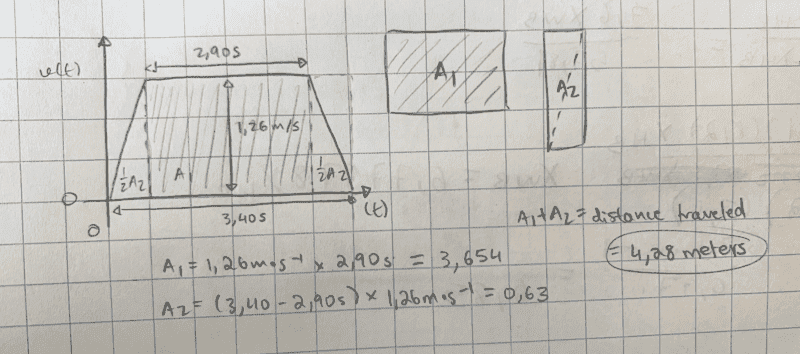 2,90s
v(t)
A₁
A₂
1,26 m/s
½A₂
A₁
½A₂
0
0
(t)
3,40s
A₁+A₂ = distance traveled
= 4,28 meters
A₁ = 1,26 m·s⁻¹ × 2,90s = 3,654
A₂ = (3,40 - 2,90s) × 1,26 m·s⁻¹ = 0,63